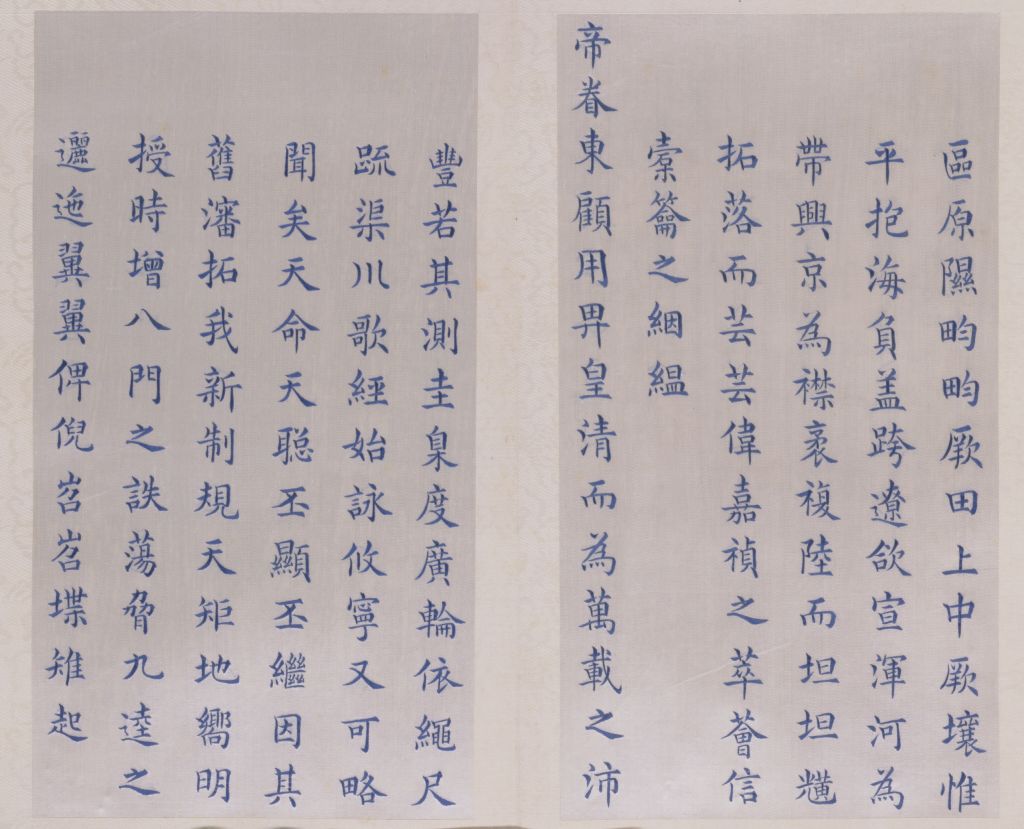 區原隰畇畇厥田上中厥壤惟
平抱海負盖跨遼欱宣渾河為
帶興京為襟袤複陸而坦坦䊯
拓落而芸芸偉嘉禎之萃薈信
橐籥之絪縕
帝眷東顧用畀皇清而為萬載之沛
豐若其測圭臬度廣輪依繩尺
䟽渠川歌經始詠攸寧又可略
聞矣天命天聰丕顯丕繼因其
舊瀋拓我新制規天矩地嚮明
授時增八門之詄蕩脅九逵之
邐迤翼翼俾倪岧岧堞雉起